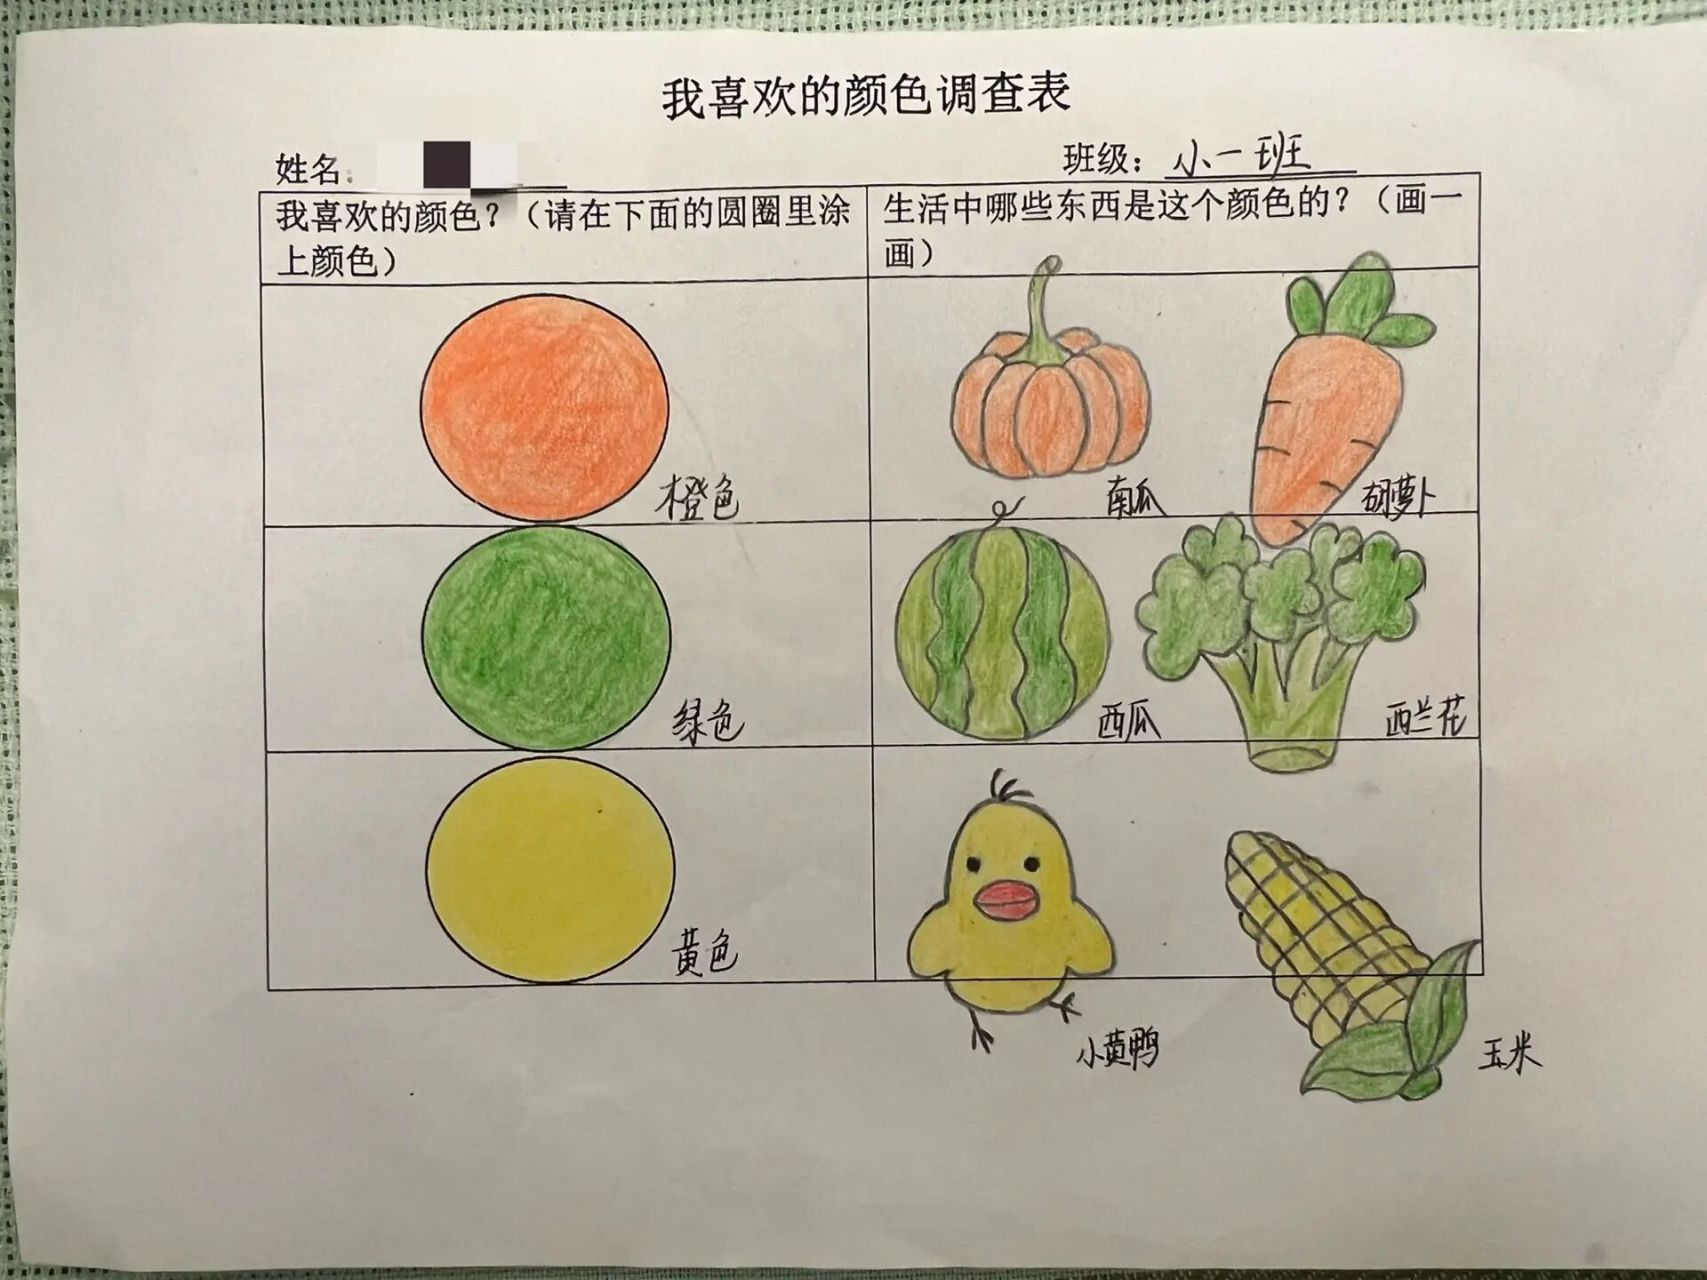 我喜欢的颜色调查表
姓名： 班级：小一班
我喜欢的颜色？（请在下面的圆圈里涂
上颜色）
生活中哪些东西是这个颜色的？（画一
画）
橙色
南瓜
胡萝卜
绿色
西瓜
西兰花
黄色
小黄鸭
玉米